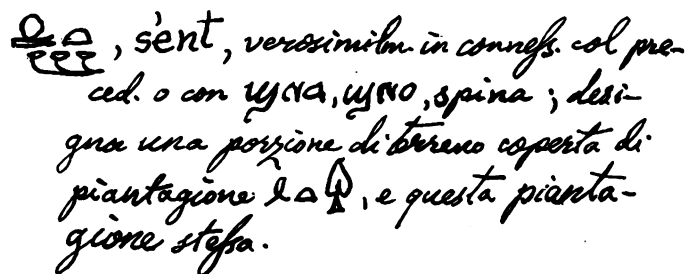 , śent, verosimilm. in conneſs. col pre-
ced. o con spina; desi-
gna una porzione di terreno coperta di
piantagione , e questa pianta-
gione steſsa.